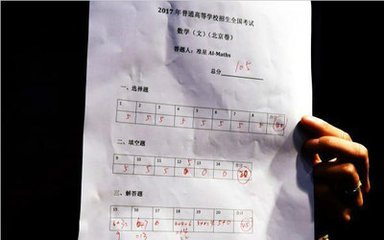 2017年普通高等学校招生全国考试
数学（文）（北京卷）
答题人：准星 AI-Maths
总分 105
一、选择题
1 2 3 4 5 6 7 8 合计
5 5 5 5 5 5 5 5 40
二、填空题
9 10 11 12 13 14 合计
5 5 5 5 0 0 20
三、解答题
15 16 17 18 19 20